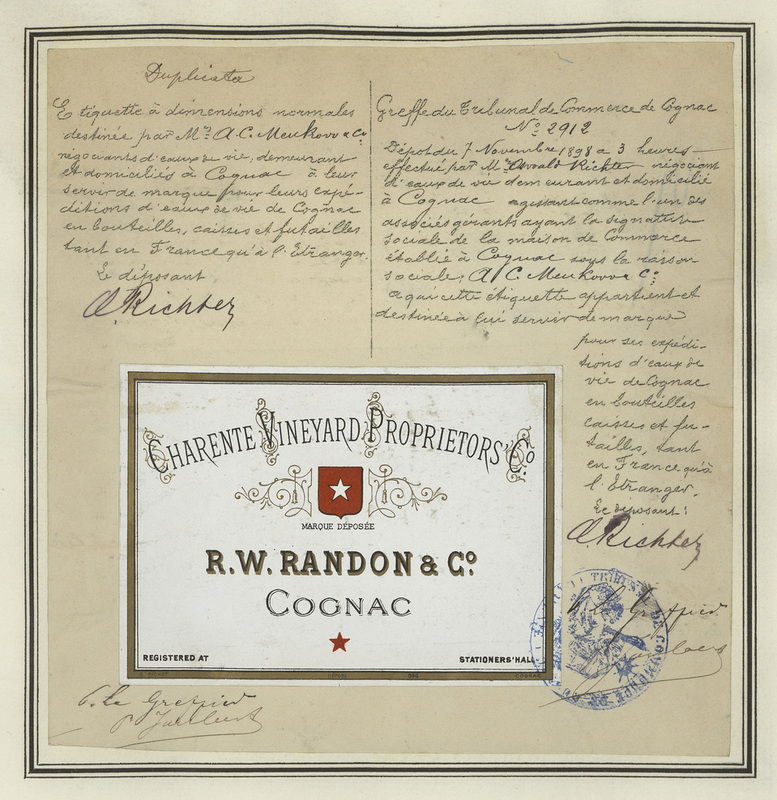 Duplicata
Etiquette à dimensions normales
destinée par Mrs A. C. Meukow & Co
négociants d'eaux de vie, demeurant
et domiciliés à Cognac à leur
servir de marque pour leurs expé-
ditions d'eaux de vie de Cognac
en bouteilles, caisses et futailles
tant en France qu'à l'Etranger.
Le déposant
O. Richter
Greffe du Tribunal de Commerce de Cognac
No 2912
Dépôt du 7 Novembre 1898 à 3 heures
effectué par Mr Oswald Richter négociant
d'eaux de vie demeurant et domicilié
à Cognac agissant comme l'un des
associés gérants ayant la signature
sociale de la maison de Commerce
établie à Cognac sous la raison
sociale: A. C. Meukow & Co
à qui cette étiquette appartient et
destinée à lui servir de marque
pour ses expédi-
tions d'eaux de
vie de Cognac
en bouteilles
caisses et fu-
tailles, tant
en France qu'à
l'Etranger.
Le déposant:
O. Richter
CHARENTE VINEYARD PROPRIETORS' Co
MARQUE DÉPOSÉE
R.W. RANDON & Co
COGNAC
REGISTERED AT
STATIONERS' HALL
COGNAC
TRIBUNAL DE COMMERCE DE
P. le Greffier
P. le Greffier